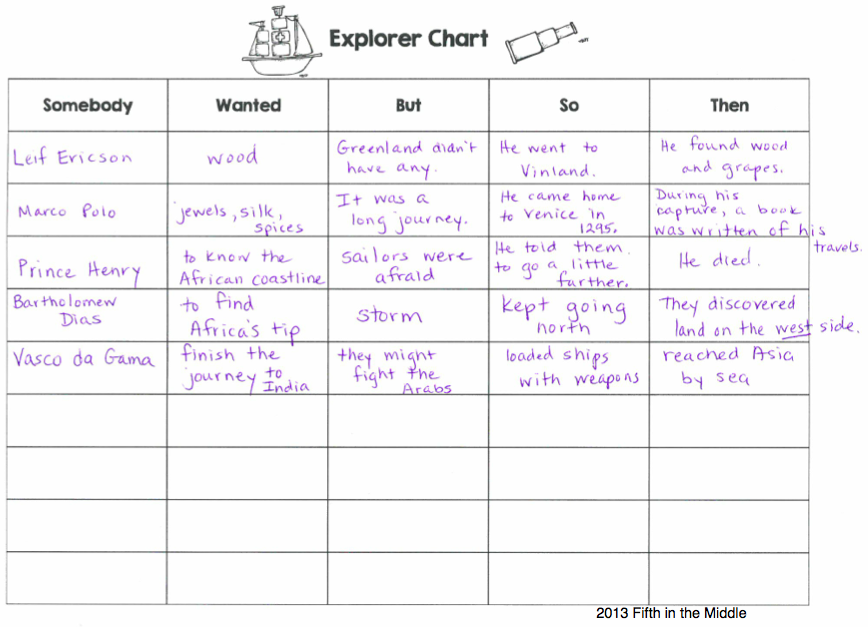 Explorer Chart
Somebody Wanted But So Then
Leif Ericson
wood
Greenland didn't
have any.
He went to
Vinland.
He found wood
and grapes.
Marco Polo
jewels, silk,
spices
It was a
long journey.
He came home
to Venice in
1295.
During his
capture, a book
was written of his
travels.
Prince Henry
to know the
African coastline
sailors were
afraid
He told them
to go a little
further.
He died.
Bartholomew
Dias
to find
Africa's tip
storm
kept going
north
They discovered
land on the west side.
Vasco da Gama
finish the
journey to
India
they might
fight the
Arabs
loaded ships
with weapons
reached Asia
by sea
2013 Fifth in the Middle